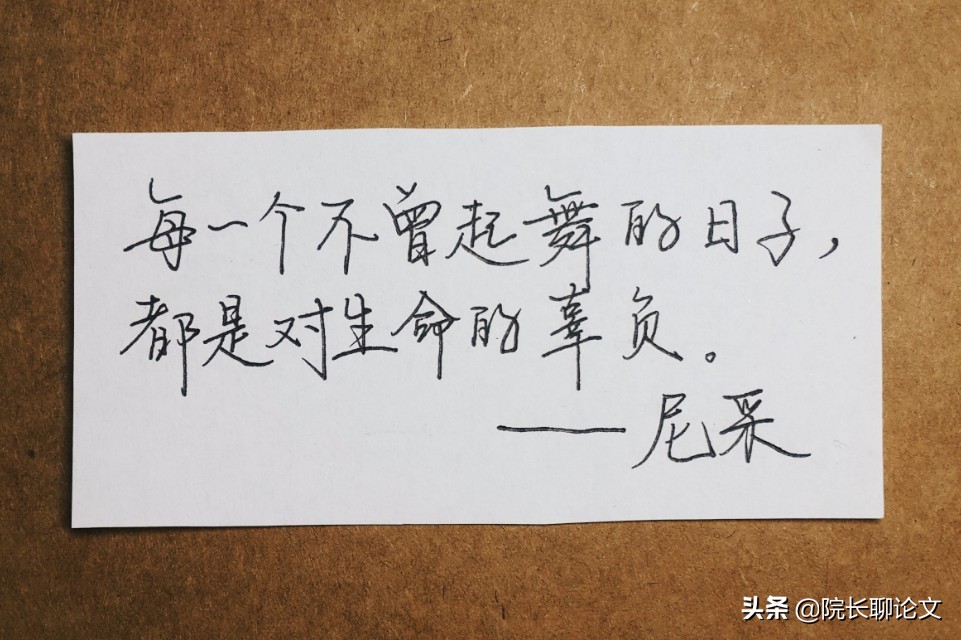 每一个不曾起舞的日子，
都是对生命的辜负。
——尼采
头条 @院长聊论文